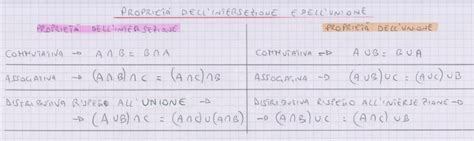 PROPRIETÀ DELL'INTERSEZIONE E DELL'UNIONE
PROPRIETÀ DELL'INTERSEZIONE
PROPRIETÀ DELL'UNIONE
COMMUTATIVA → A∩B = B∩A
COMMUTATIVA → A∪B = B∪A
ASSOCIATIVA → (A∩B)∩C = (A∩C)∩B
ASSOCIATIVA → (A∪B)∪C = (A∪C)∪B
DISTRIBUTIVA RISPETTO ALL'UNIONE →
DISTRIBUTIVA RISPETTO ALL'INTERSEZIONE →
→ (A∪B)∩C = (A∩C)∪(A∩B)
→ (A∩B)∪C = (A∩C)∪B